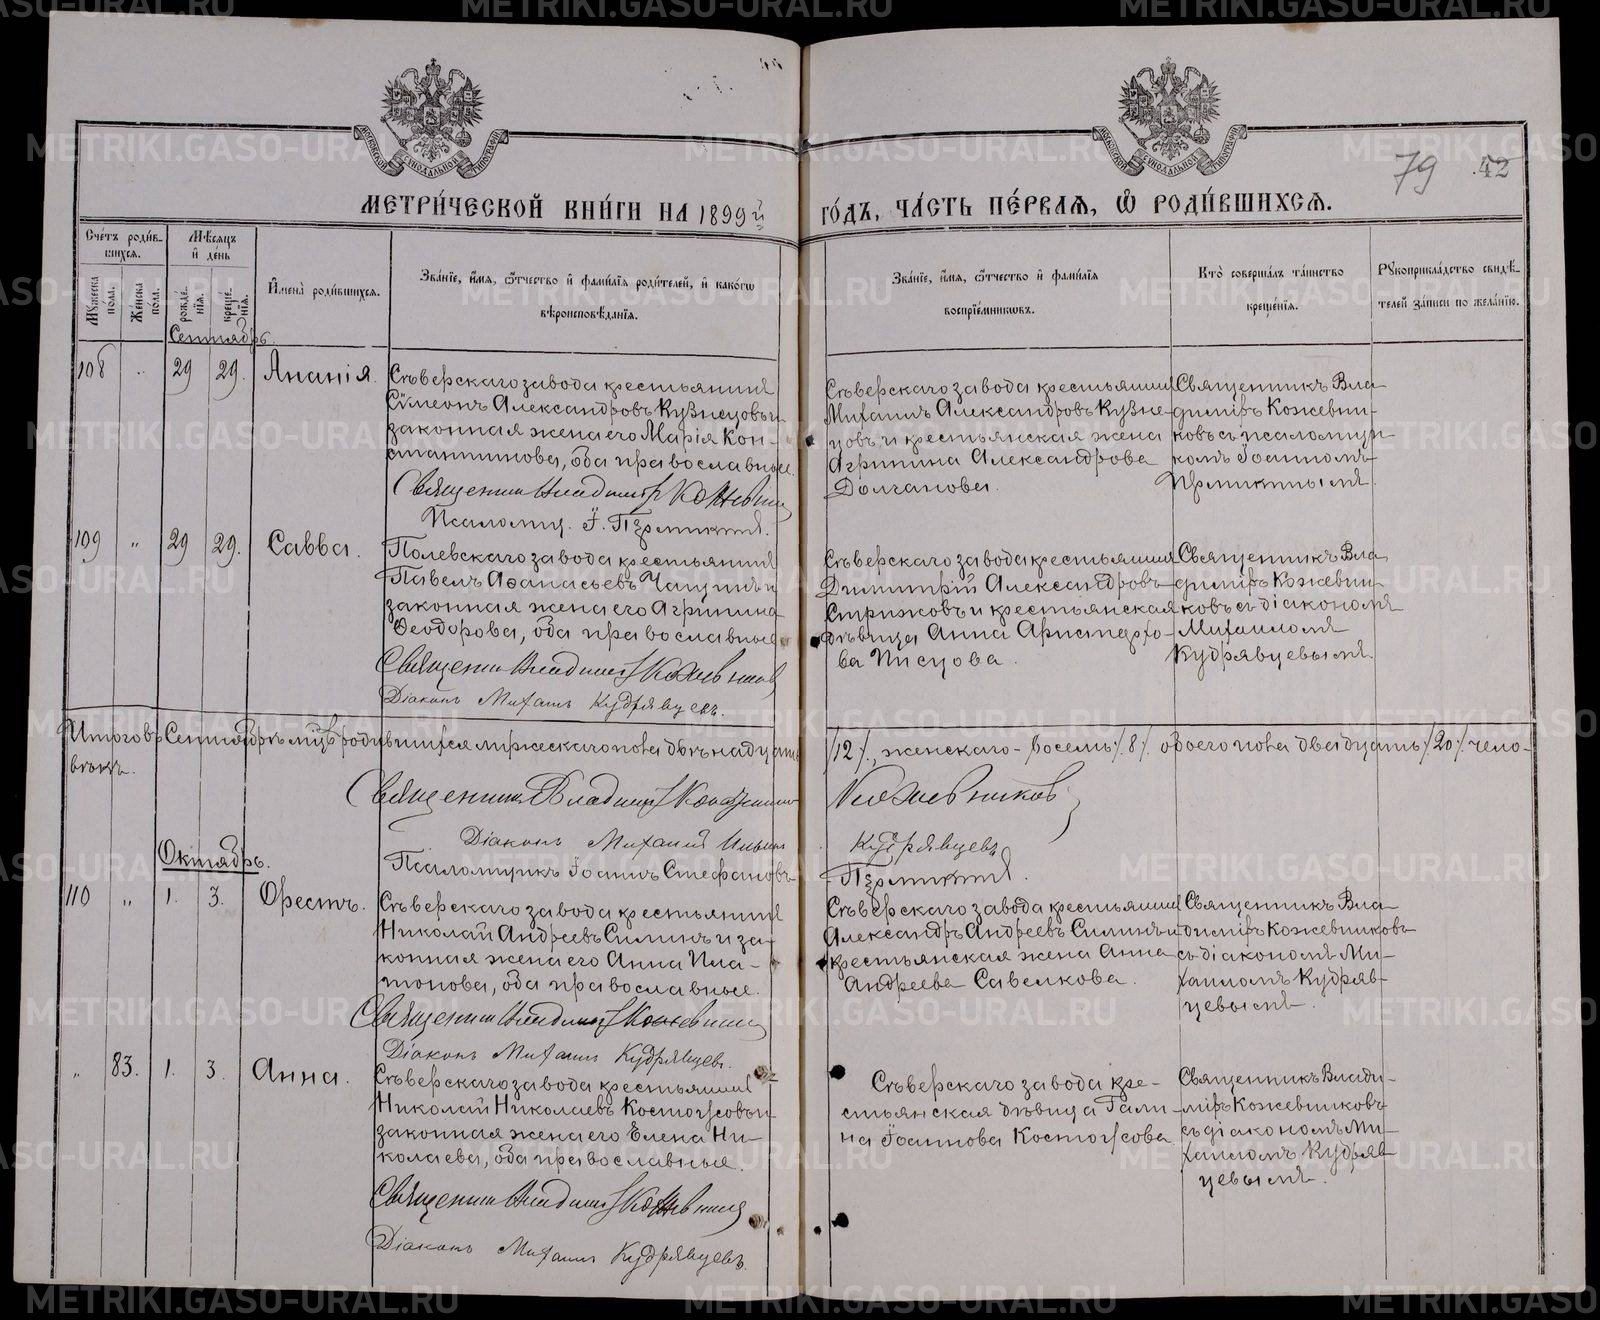 METRIKI.GASO-URAL.RU
79 42
МЕТРИ́ЧЕСКОЙ КНИ́ГИ НА 1899й ГО́ДЪ, ЧА́СТЬ ПЕ́РВАЯ, Ѽ РОДИ́ВШИХСЯ.
Сче́тъ роди́вшихся.
Му́жеска по́ла.
Же́нска по́ла.
Мѣ́сяцъ и҆ де́нь
рожде́нїя.
креще́нїя.
И҆мена̀ роди́вшихся.
Зва́нїе, и҆́мя, ѻ҆́тчество и҆ фами́лїя роди́телей, и҆ како́гѡ
вѣроисповѣ́данїя.
Зва́нїе, и҆́мя, ѻ҆́тчество и҆ фами́лїя
воспрїе́мникѡвъ.
Кто̀ соверша́лъ та́инство
креще́нїя.
Рукоприкла́дство свидѣ́телей за́писи по жела́нїю.
Сентябрь.
108 „ 29 29. Ананія.
Сѣверскаго завода крестьянинъ
Сѵмеонъ Александровъ Кузнецовъ и
законная жена его Марія Кон-
стантинова, оба православные.
Псаломщ. І.
Сѣверскаго завода крестьянинъ
Михаилъ Александровъ Кузне-
цовъ и крестьянская жена
Агрипина Александрова
Долганова.
Священникъ Вла-
диміръ Кожевни-
ковъ съ псаломщи-
комъ Іоанномъ
109 „ 29 29. Савва.
Полевскаго завода крестьянинъ
Павелъ Аѳанасьевъ и
законная жена его Агрипина
Ѳеодорова, оба православные
Діаконъ Михаилъ Кудрявцевъ.
Сѣверскаго завода крестьянинъ
Димитрій Александровъ
Стрижковъ и крестьянская
дѣвица Анна Аристархо-
ва Писцова.
Священникъ Вла-
диміръ Кожевни-
ковъ съ діакономъ
Михаиломъ
Кудрявцевымъ.
Итого въ Сентябрѣ мцѣ родившихся мужескаго пола двѣнадцать /12/, женскаго - восемь /8/ обоего пола двадцать /20/ чело-
вѣкъ.
Священникъ Владиміръ Кожевниковъ
Діаконъ Михаилъ Кудрявцевъ
Псаломщикъ Іоаннъ Стефановъ
Октябрь.
110 „ 1. 3. Орестъ.
Сѣверскаго завода крестьянинъ
Николай Андреевъ Силинъ и за-
конная жена его Анна Пла-
тонова, оба православные.
Діаконъ Михаилъ Кудрявцевъ.
Сѣверскаго завода крестьянинъ
Александръ Андреевъ Силинъ и
крестьянская жена Анна
Андреева Савелкова.
Священникъ Вла-
диміръ Кожевниковъ
съ діакономъ Ми-
хаиломъ Кудряв-
цевымъ.
„ 83. 1. 3. Анна.
Сѣверскаго завода крестьянинъ
Николай Николаевъ Костоусовъ и
законная жена его Елена Ни-
колаева, оба православные.
Діаконъ Михаилъ Кудрявцевъ.
Сѣверскаго завода кре-
стьянская дѣвица Гали-
на Іоаннова Костоусова
Священникъ Влади-
міръ Кожевниковъ
съ діакономъ Ми-
хаиломъ Кудряв-
цевымъ.